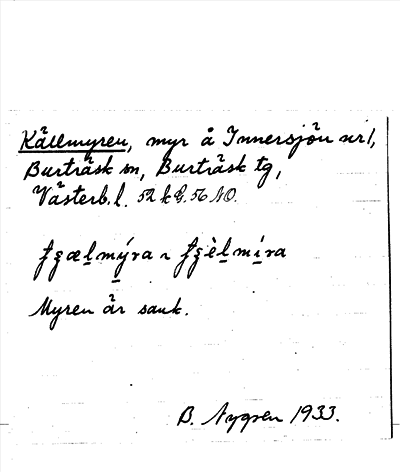 Källmyren, myr å Innersjön nr 1,
Burträsk sn, Burträsk tg,
Västerb. l. 52 k 8. 56 NO.
Myren är sank.
B. Nygren 1933.